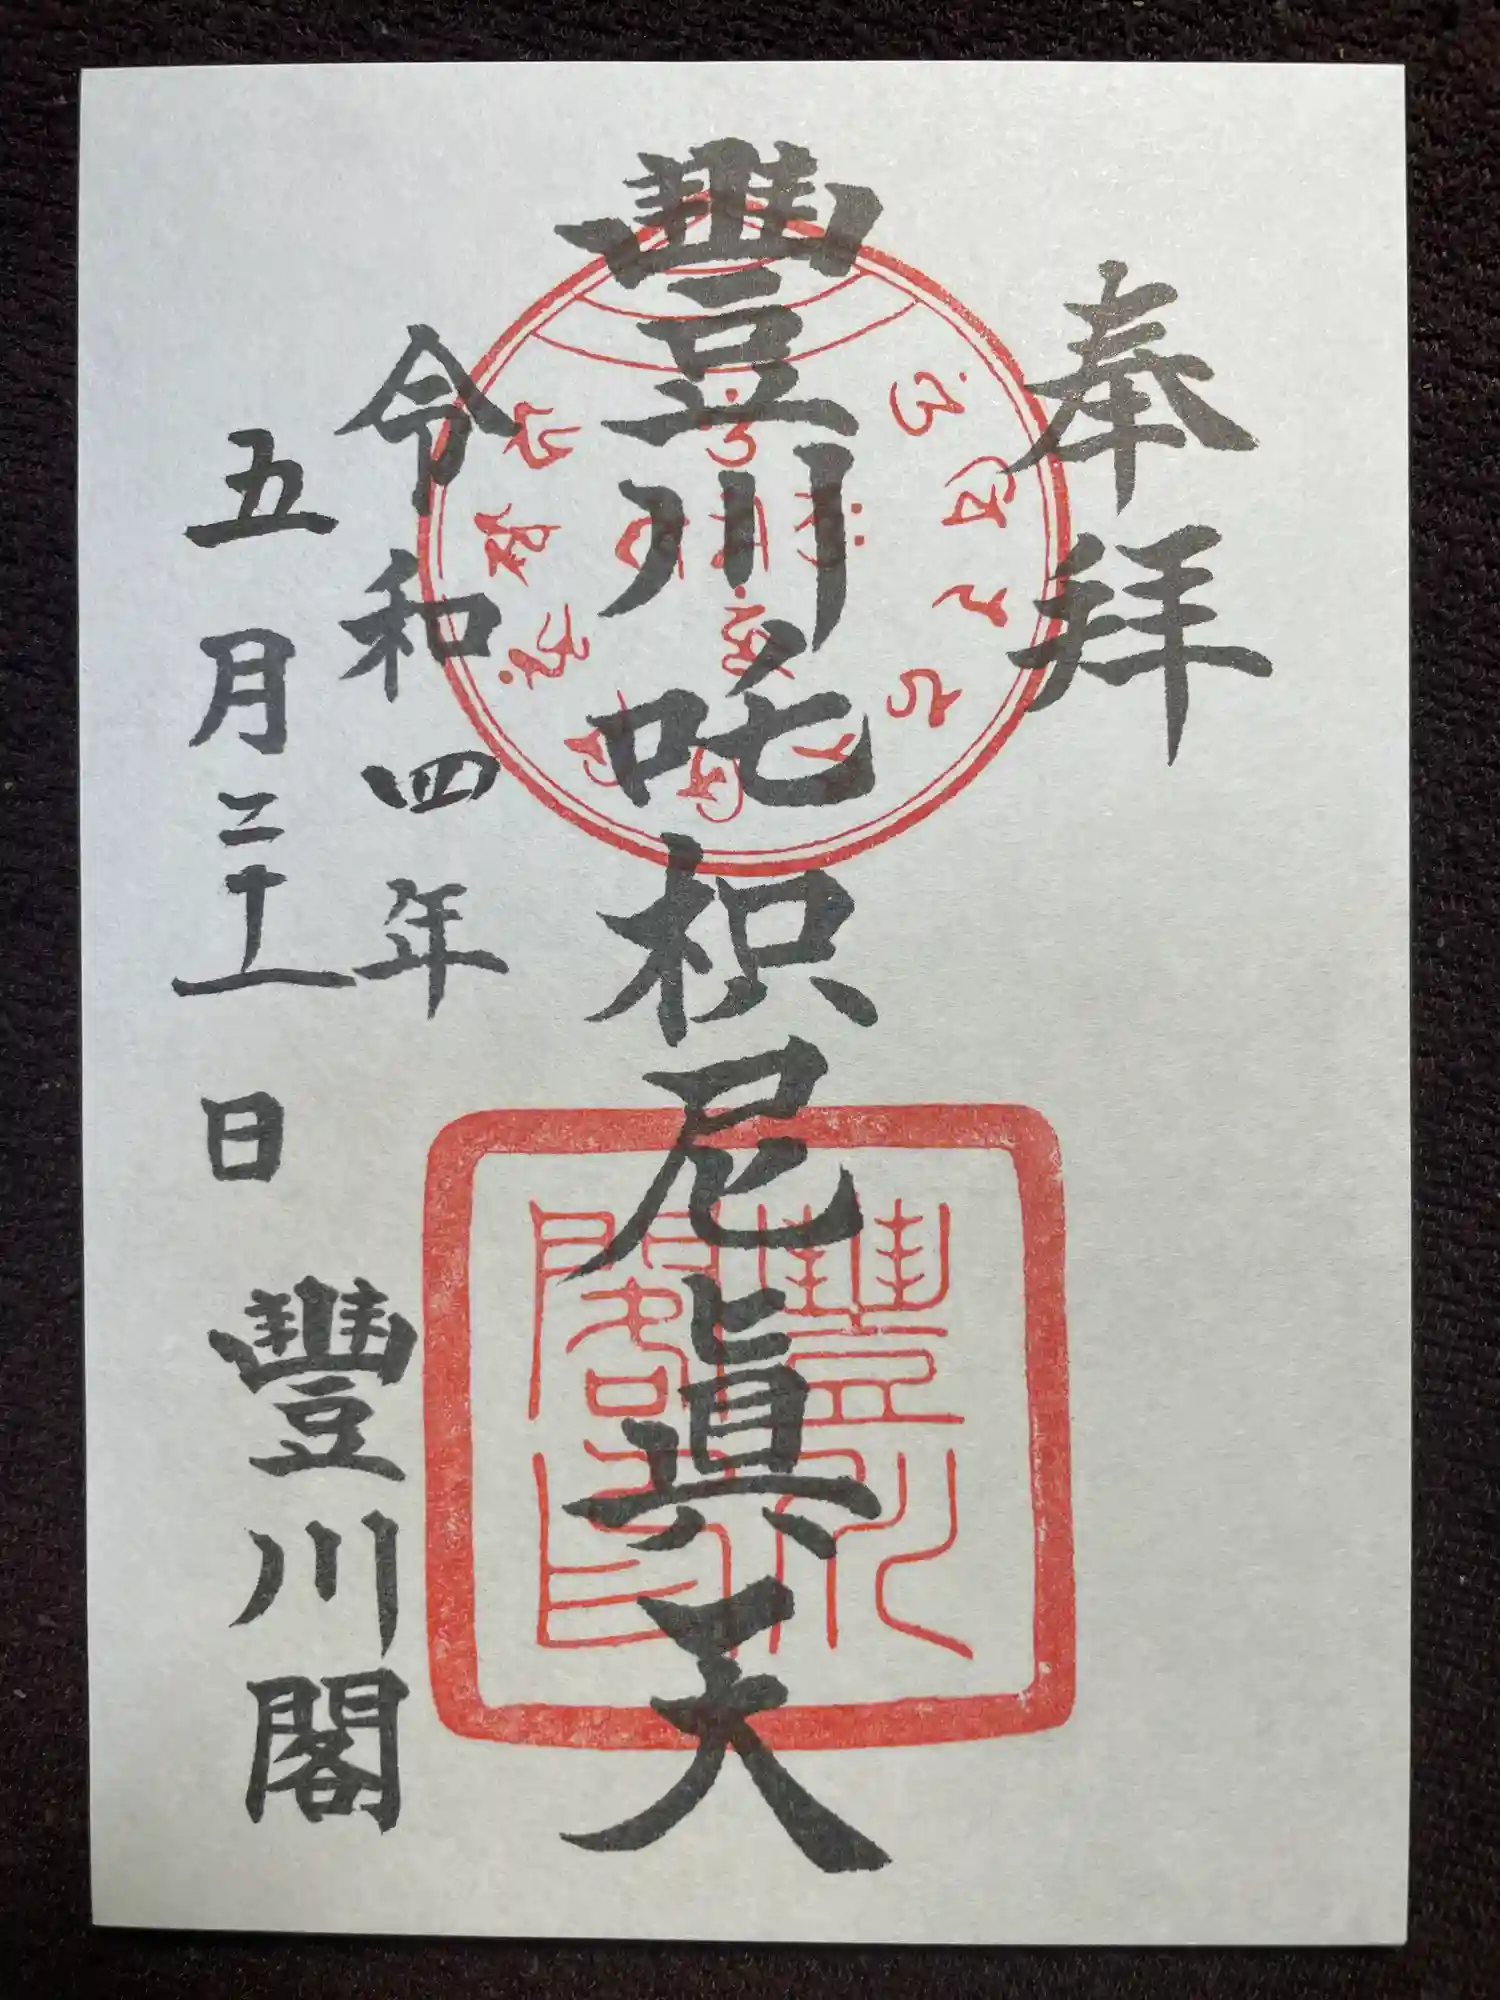 奉拝
豐川吒枳尼眞天
令和四年
五月二十一日
豐川閣
豐川
閣印